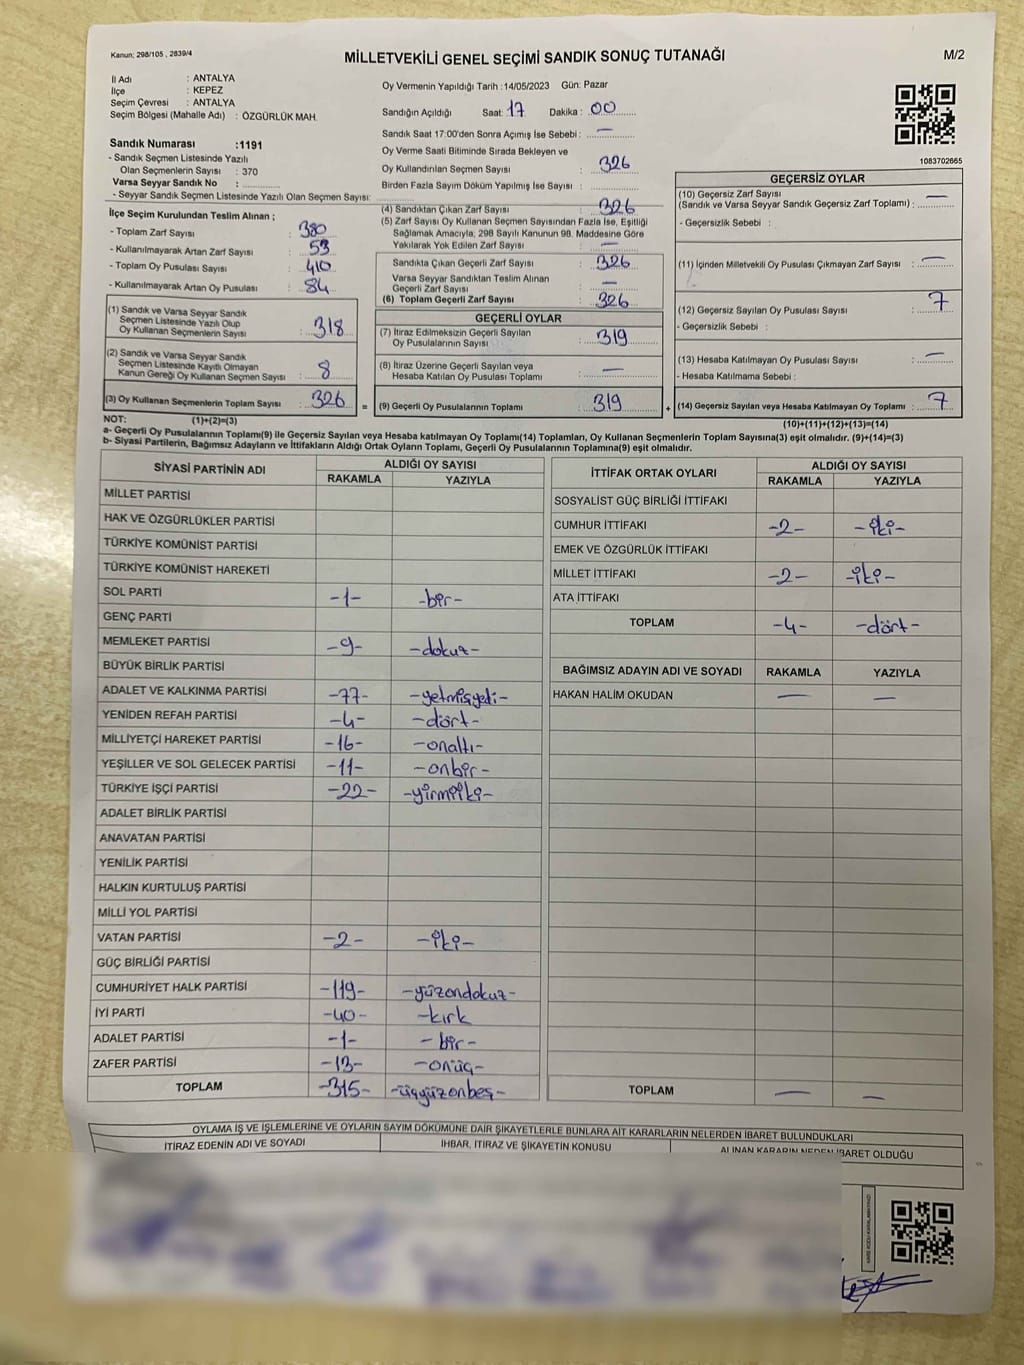 Kanun: 298/105 , 2839/4
MİLLETVEKİLİ GENEL SEÇİMİ SANDIK SONUÇ TUTANAĞI
M/2
İl Adı : ANTALYA
İlçe : KEPEZ
Seçim Çevresi : ANTALYA
Seçim Bölgesi (Mahalle Adı) : ÖZGÜRLÜK MAH.
Sandık Numarası :1191
- Sandık Seçmen Listesinde Yazılı
Olan Seçmenlerin Sayısı : 370
Varsa Seyyar Sandık No :
- Seyyar Sandık Seçmen Listesinde Yazılı Olan Seçmen Sayısı:
İlçe Seçim Kurulundan Teslim Alınan ;
- Toplam Zarf Sayısı : 380
- Kullanılmayarak Artan Zarf Sayısı : 53
- Toplam Oy Pusulası Sayısı : 410
- Kullanılmayarak Artan Oy Pusulası : 84
(1) Sandık ve Varsa Seyyar Sandık
Seçmen Listesinde Yazılı Olup
Oy Kullanan Seçmenlerin Sayısı : 318
(2) Sandık ve Varsa Seyyar Sandık
Seçmen Listesinde Kayıtlı Olmayan
Kanun Gereği Oy Kullanan Seçmen Sayısı : 8
(3) Oy Kullanan Seçmenlerin Toplam Sayısı : 326
Oy Vermenin Yapıldığı Tarih :14/05/2023 Gün: Pazar
Sandığın Açıldığı Saat: 17 Dakika : 00
Sandık Saat 17:00'den Sonra Açımış İse Sebebi : —
Oy Verme Saati Bitiminde Sırada Bekleyen ve
Oy Kullandırılan Seçmen Sayısı : 326
Birden Fazla Sayım Döküm Yapılmış İse Sayısı :
(4) Sandıktan Çıkan Zarf Sayısı : 326
(5) Zarf Sayısı Oy Kullanan Seçmen Sayısından Fazla İse, Eşitliği
Sağlamak Amacıyla, 298 Sayılı Kanunun 98. Maddesine Göre
Yakılarak Yok Edilen Zarf Sayısı : —
Sandıkta Çıkan Geçerli Zarf Sayısı : 326
Varsa Seyyar Sandıktan Teslim Alınan
Geçerli Zarf Sayısı : —
(6) Toplam Geçerli Zarf Sayısı : 326
GEÇERLİ OYLAR
(7) İtiraz Edilmeksizin Geçerli Sayılan
Oy Pusulalarının Sayısı : 319
(8) İtiraz Üzerine Geçerli Sayılan veya
Hesaba Katılan Oy Pusulası Toplamı : —
= (9) Geçerli Oy Pusulalarının Toplamı : 319
1083702665
GEÇERSİZ OYLAR
(10) Geçersiz Zarf Sayısı
(Sandık ve Varsa Seyyar Sandık Geçersiz Zarf Toplamı) : —
- Geçersizlik Sebebi :
(11) İçinden Milletvekili Oy Pusulası Çıkmayan Zarf Sayısı : —
(12) Geçersiz Sayılan Oy Pusulası Sayısı : 7
- Geçersizlik Sebebi :
(13) Hesaba Katılmayan Oy Pusulası Sayısı : —
- Hesaba Katılmama Sebebi :
+ (14) Geçersiz Sayılan veya Hesaba Katılmayan Oy Toplamı : 7
NOT: (1)+(2)=(3)
(10)+(11)+(12)+(13)=(14)
a- Geçerli Oy Pusulalarının Toplamı(9) ile Geçersiz Sayılan veya Hesaba katılmayan Oy Toplamı(14) Toplamları, Oy Kullanan Seçmenlerin Toplam Sayısına(3) eşit olmalıdır. (9)+(14)=(3)
b- Siyasi Partilerin, Bağımsız Adayların ve İttifakların Aldığı Ortak Oyların Toplamı, Geçerli Oy Pusulalarının Toplamına(9) eşit olmalıdır.
SİYASİ PARTİNİN ADI ALDIĞI OY SAYISI
RAKAMLA YAZIYLA
MİLLET PARTİSİ
HAK VE ÖZGÜRLÜKLER PARTİSİ
TÜRKİYE KOMÜNİST PARTİSİ
TÜRKİYE KOMÜNİST HAREKETİ
SOL PARTİ -1- -bir-
GENÇ PARTİ
MEMLEKET PARTİSİ -9- -dokuz-
BÜYÜK BİRLİK PARTİSİ
ADALET VE KALKINMA PARTİSİ -77- -yetmişyedi-
YENİDEN REFAH PARTİSİ -4- -dört-
MİLLİYETÇİ HAREKET PARTİSİ -16- -onaltı-
YEŞİLLER VE SOL GELECEK PARTİSİ -11- -onbir-
TÜRKİYE İŞÇİ PARTİSİ -22- -yirmiiki-
ADALET BİRLİK PARTİSİ
ANAVATAN PARTİSİ
YENİLİK PARTİSİ
HALKIN KURTULUŞ PARTİSİ
MİLLİ YOL PARTİSİ
VATAN PARTİSİ -2- -iki-
GÜÇ BİRLİĞİ PARTİSİ
CUMHURİYET HALK PARTİSİ -119- -yüzondokuz-
İYİ PARTİ -40- -kırk
ADALET PARTİSİ -1- -bir-
ZAFER PARTİSİ -13- -onüç-
TOPLAM -315- -üçyüzonbeş-
İTTİFAK ORTAK OYLARI ALDIĞI OY SAYISI
RAKAMLA YAZIYLA
SOSYALİST GÜÇ BİRLİĞİ İTTİFAKI
CUMHUR İTTİFAKI -2- -iki-
EMEK VE ÖZGÜRLÜK İTTİFAKI
MİLLET İTTİFAKI -2- -iki-
ATA İTTİFAKI
TOPLAM -4- -dört-
BAĞIMSIZ ADAYIN ADI VE SOYADI RAKAMLA YAZIYLA
HAKAN HALİM OKUDAN — —
TOPLAM — —
OYLAMA İŞ VE İŞLEMLERİNE VE OYLARIN SAYIM DÖKÜMÜNE DAİR ŞİKAYETLERLE BUNLARA AİT KARARLARIN NELERDEN İBARET BULUNDUKLARI
İTİRAZ EDENİN ADI VE SOYADI İHBAR, İTİRAZ VE ŞİKAYETİN KONUSU ALINAN KARARIN NEDEN İBARET OLDUĞU